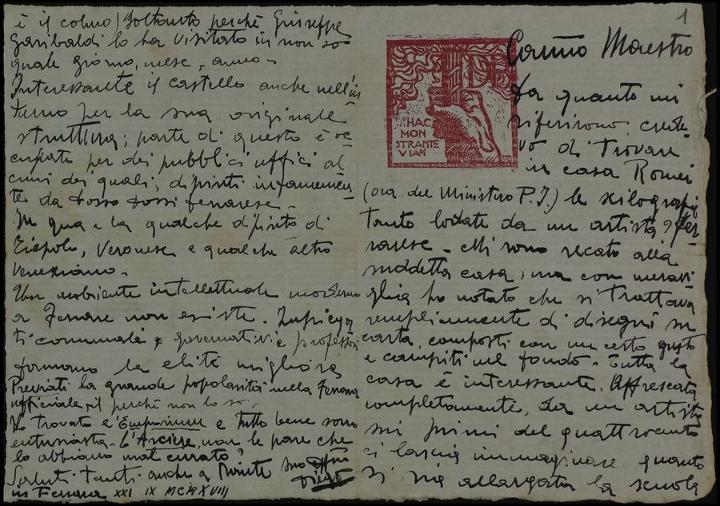 1
Carissimo Maestro
da quanto mi
riferirono, crede
vo di trovare
in casa Romei
(ora del Ministero P.I.) le xilografie
tanto lodate da un artista fer
rarese. Mi sono recato alla
suddetta casa, ma con meravi
glia ho notato che si trattava
semplicemente di disegni su
carta, composti con un certo gusto
e compiti nel fondo. Tutta la
casa è interessante. Affrescata
completamente, da un artista
sui primi del quattrocento
ci lascia immaginare quanto
si sia allargata la scuola
HAC
MON
STRANTE
VIAM
è il colmo! Soltanto perché Giuseppe
Garibaldi lo ha visitato in non so
quale giorno, mese, anno.
Interessante il castello anche nell'in
terno per la sua originale
struttura; parte di questo è oc
cupata per dei pubblici uffici al
cuni dei quali, dipinti
da Dosso Dossi ferrarese.
In qua e la qualche dipinto di
Tiepolo, Veronese e qualche altro
veneziano.
Un ambiente intellettuale moderno
a Ferrara non esiste. Impiega
ti comunali e governativi e professori
formano la elite migliore
Previati ha grande popolarità nella Ferrara
ufficiale, il perché non lo so.
Ho trovato e Emporium e tutto bene sono
entusiasta. L'Asciese, non le pare che
lo abbiano mal curato?
Saluti tanti anche a suo
Diego
in Ferrara XXI IX MCMXVIII